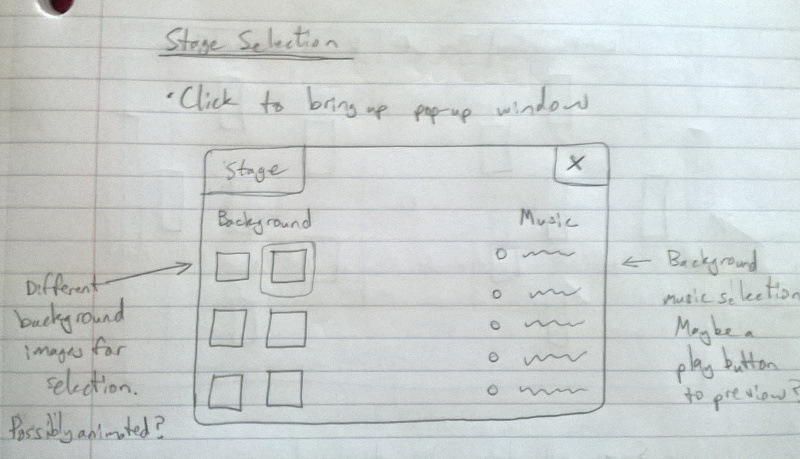 Stage Selection
• Click to bring up pop-up window
Stage
X
Background
Music
Different
background
images for
selection.
Possibly animated?
Background
music selection
Maybe a
play button
to preview?